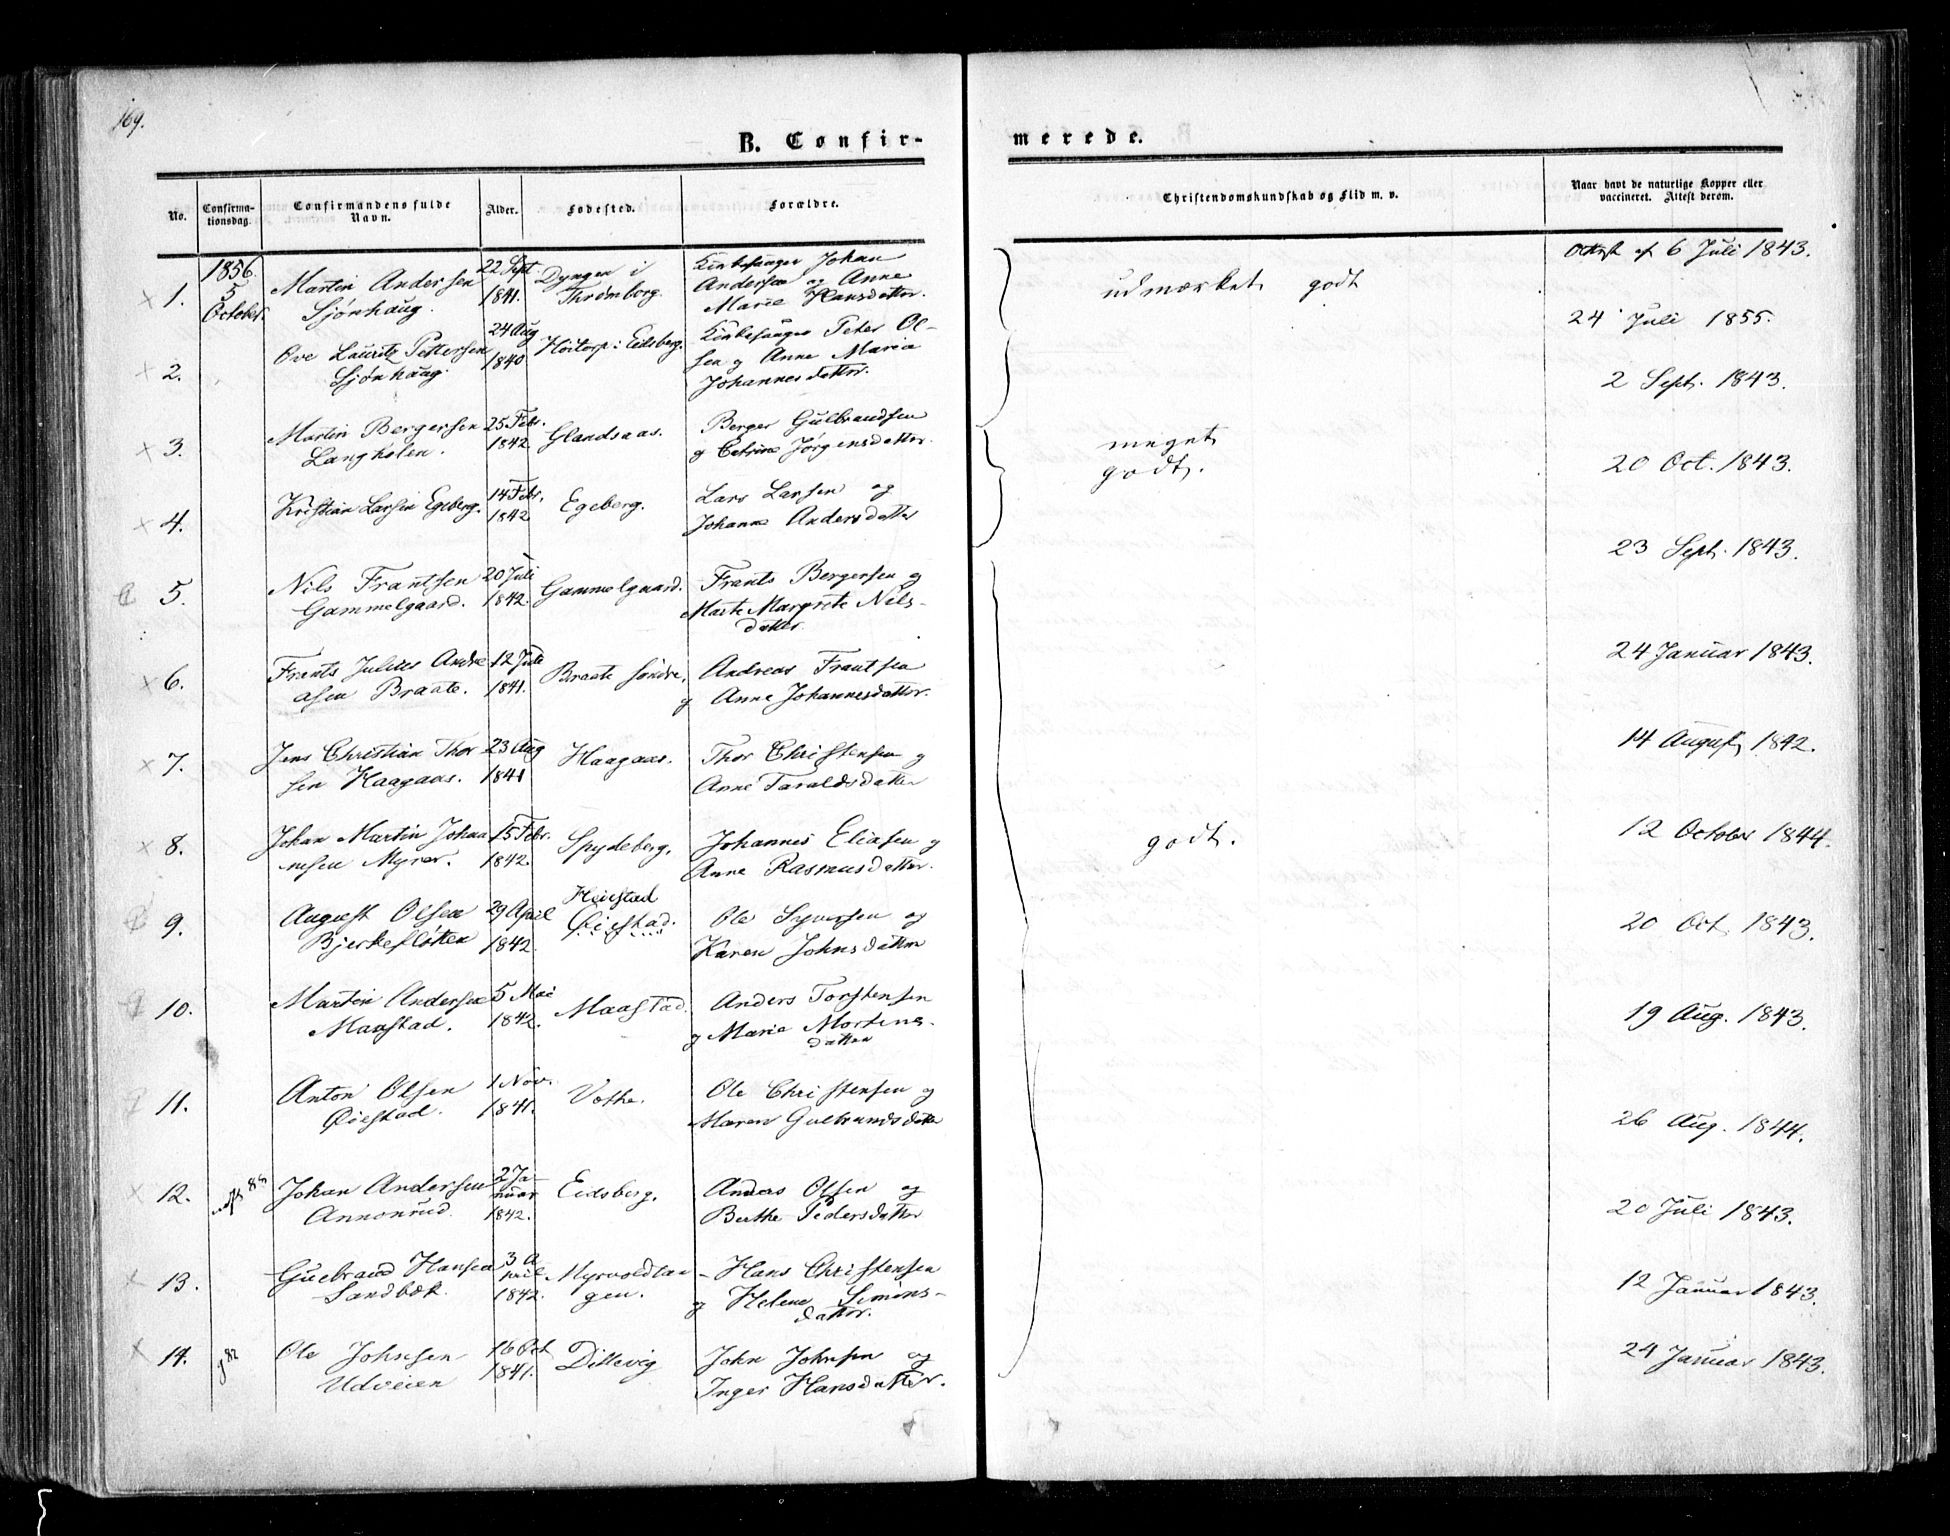 169.
B. Confirmerede.
No. Confirmationsdag. Confirmandens fulde Navn. Alder. Fødested. Forældre. Christendomskundskab og Flid m. v. Naar havt de naturlige Kopper eller vaccineret. Attest derom.
1856.
1. 5 October. Martin Andersen Sjønhaug. 22 Sept 1841. Dyngen i Thrømborg. Kirkesanger Johan Andersen og Anne Marie Hansdatter. udmærket godt Attest af 6 Juli 1843.
2. Ove Lauritz Pettersen Sjønhaug. 24 Aug 1840 Höitorp i Eidsberg. Kirkesanger Peter Olsen og Anne Maria Johannesdatter. 24 Juli 1855.
3. Martin Bergersen Langholen. 25 Febr. 1842. Glandsaas. Berger Gulbrandsen og Cetrine Jørgensdatter. meget godt. 2 Sept. 1843.
4. Kristian Larsen Egeberg. 14 Febr. 1842. Egeberg. Lars Larsen og Johanne Andersdatter 20 Oct. 1843.
5. Nils Frantsen Gammelgaard. 20 Juli 1842. Gammelgaard. Frants Bergersen og Marte Margrete Nilsdatter. 23 Sept. 1843.
6. Frants Julius Andreasen Braate. 12 Juli 1841. Braate søndre. Andreas Frantsen og Anne Johannesdatter. 24 Januar 1843.
7. Jens Christian Thorsen Haagaas. 23 Aug 1841 Haagaas. Thor Christensen og Anne Taraldsdatter 14 August 1842.
8. Johan Martin Johannesen Myrer. 15 Febr. 1842. Spydeberg. Johannes Eliasen og Anne Rasmusdatter. godt. 12 October 1844.
9. August Olsen Bjerkesløtten 29 April 1842. Heiestad Øiestad. Ole Syversen og Karen Johnsdatter 20 Oct. 1843.
10. Martin Andersen Maastad. 5 Mai 1842. Maastad. Anders Torstensen og Marie Mortensdatter 19 Aug. 1843.
11. Anton Olsen Øiestad. 1 Nov. 1841. Vothe. Ole Christensen og Maren Gulbrandsdatter 26 Aug. 1844.
12. Johan Andersen Annonrud. 2 Januar 1842. Eidsberg. Anders Olsen og Berthe Pedersdatter 20 Juli 1843.
13. Gulbrand Hansen Sandbæk. 3 April 1842. Myrvoldtangen. Hans Christensen og Helene Simonsdatter. 12 Januar 1843.
14. Ole Johnsen Udveien 16 Oct 1841. Dillevig John Johnsen og Inger Hansdatter. 24 Januar 1843.